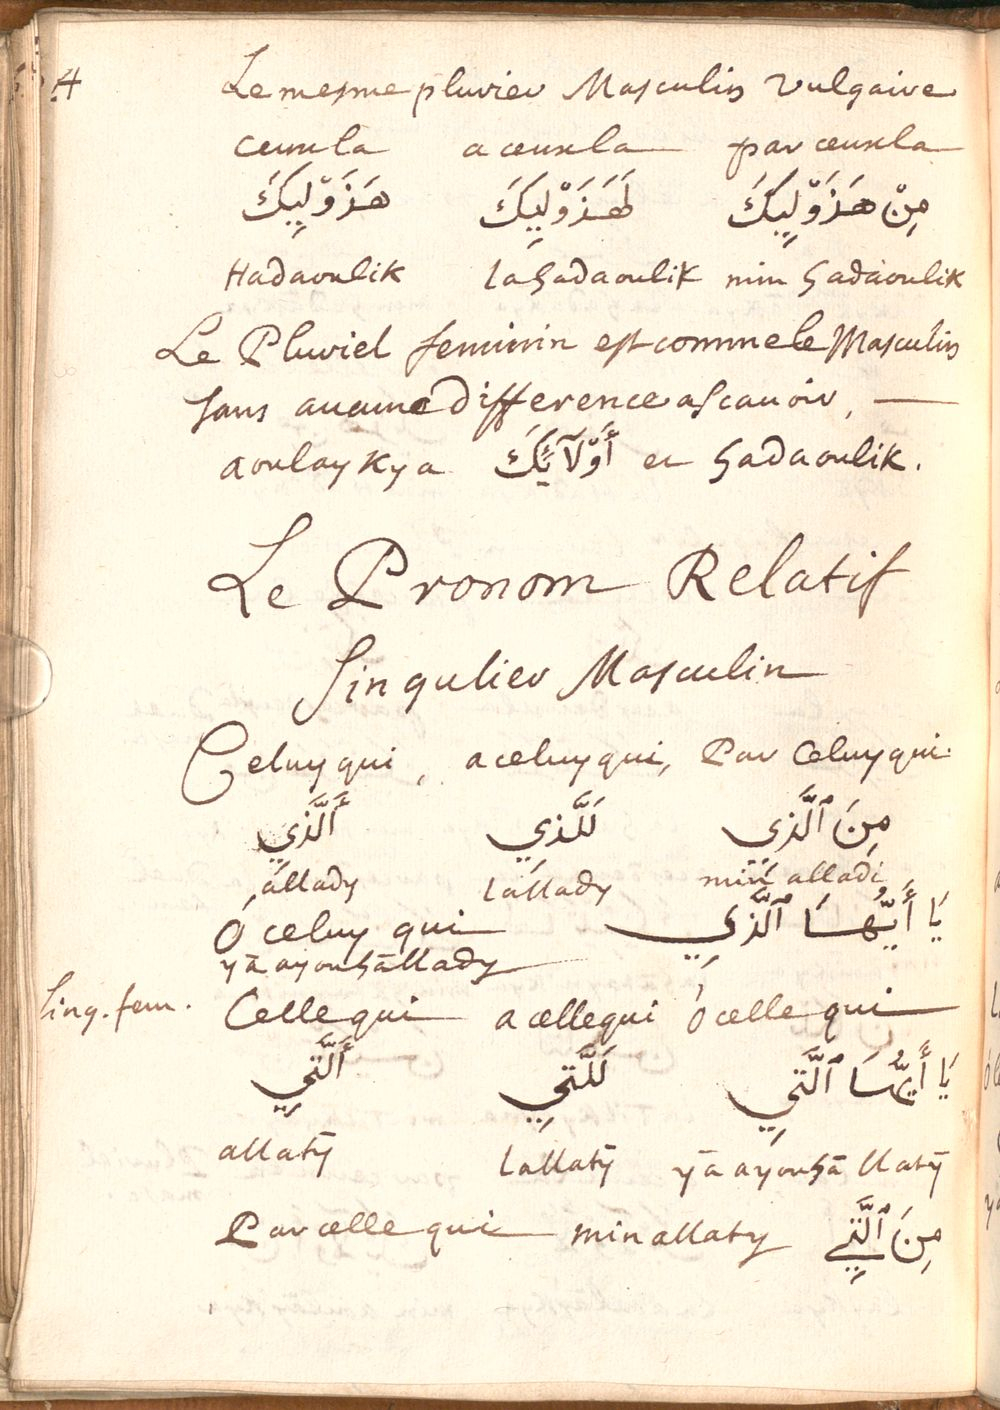 Le mesme plurier Masculin Vulgaire
ceuxla a ceuxla par ceuxla
هَذَوْلِيكَ لَهَذَوْلِيكَ مِنْ هَذَوْلِيكَ
Hadaoulik lahadaoulik min hadaoulik
Le Pluriel feminin est comme le Masculin
sans aucune difference ascauoir, —
aoulaykya أَوْلَآيِكَ et hadaoulik.
Le Pronom Relatif
Singulier Masculin
Celuy qui, a celuy qui, Par Celuy qui.
أَلَّذِي لَلَّذِي مِنَ ٱلَّذِي
allady lallady min alladi
Ó celuy qui يَا أَيُّهَا ٱلَّذِي
yā ayouhāllady
Sing. fem. Celle qui a celle qui ó celle qui
أَلَّتِي لَلَّتِي يَا أَيُّهَا ٱلَّتِي
allatÿ lallatÿ ÿa ayouhā llatÿ
Par celle qui min allaty مِنَ ٱلَّتِي